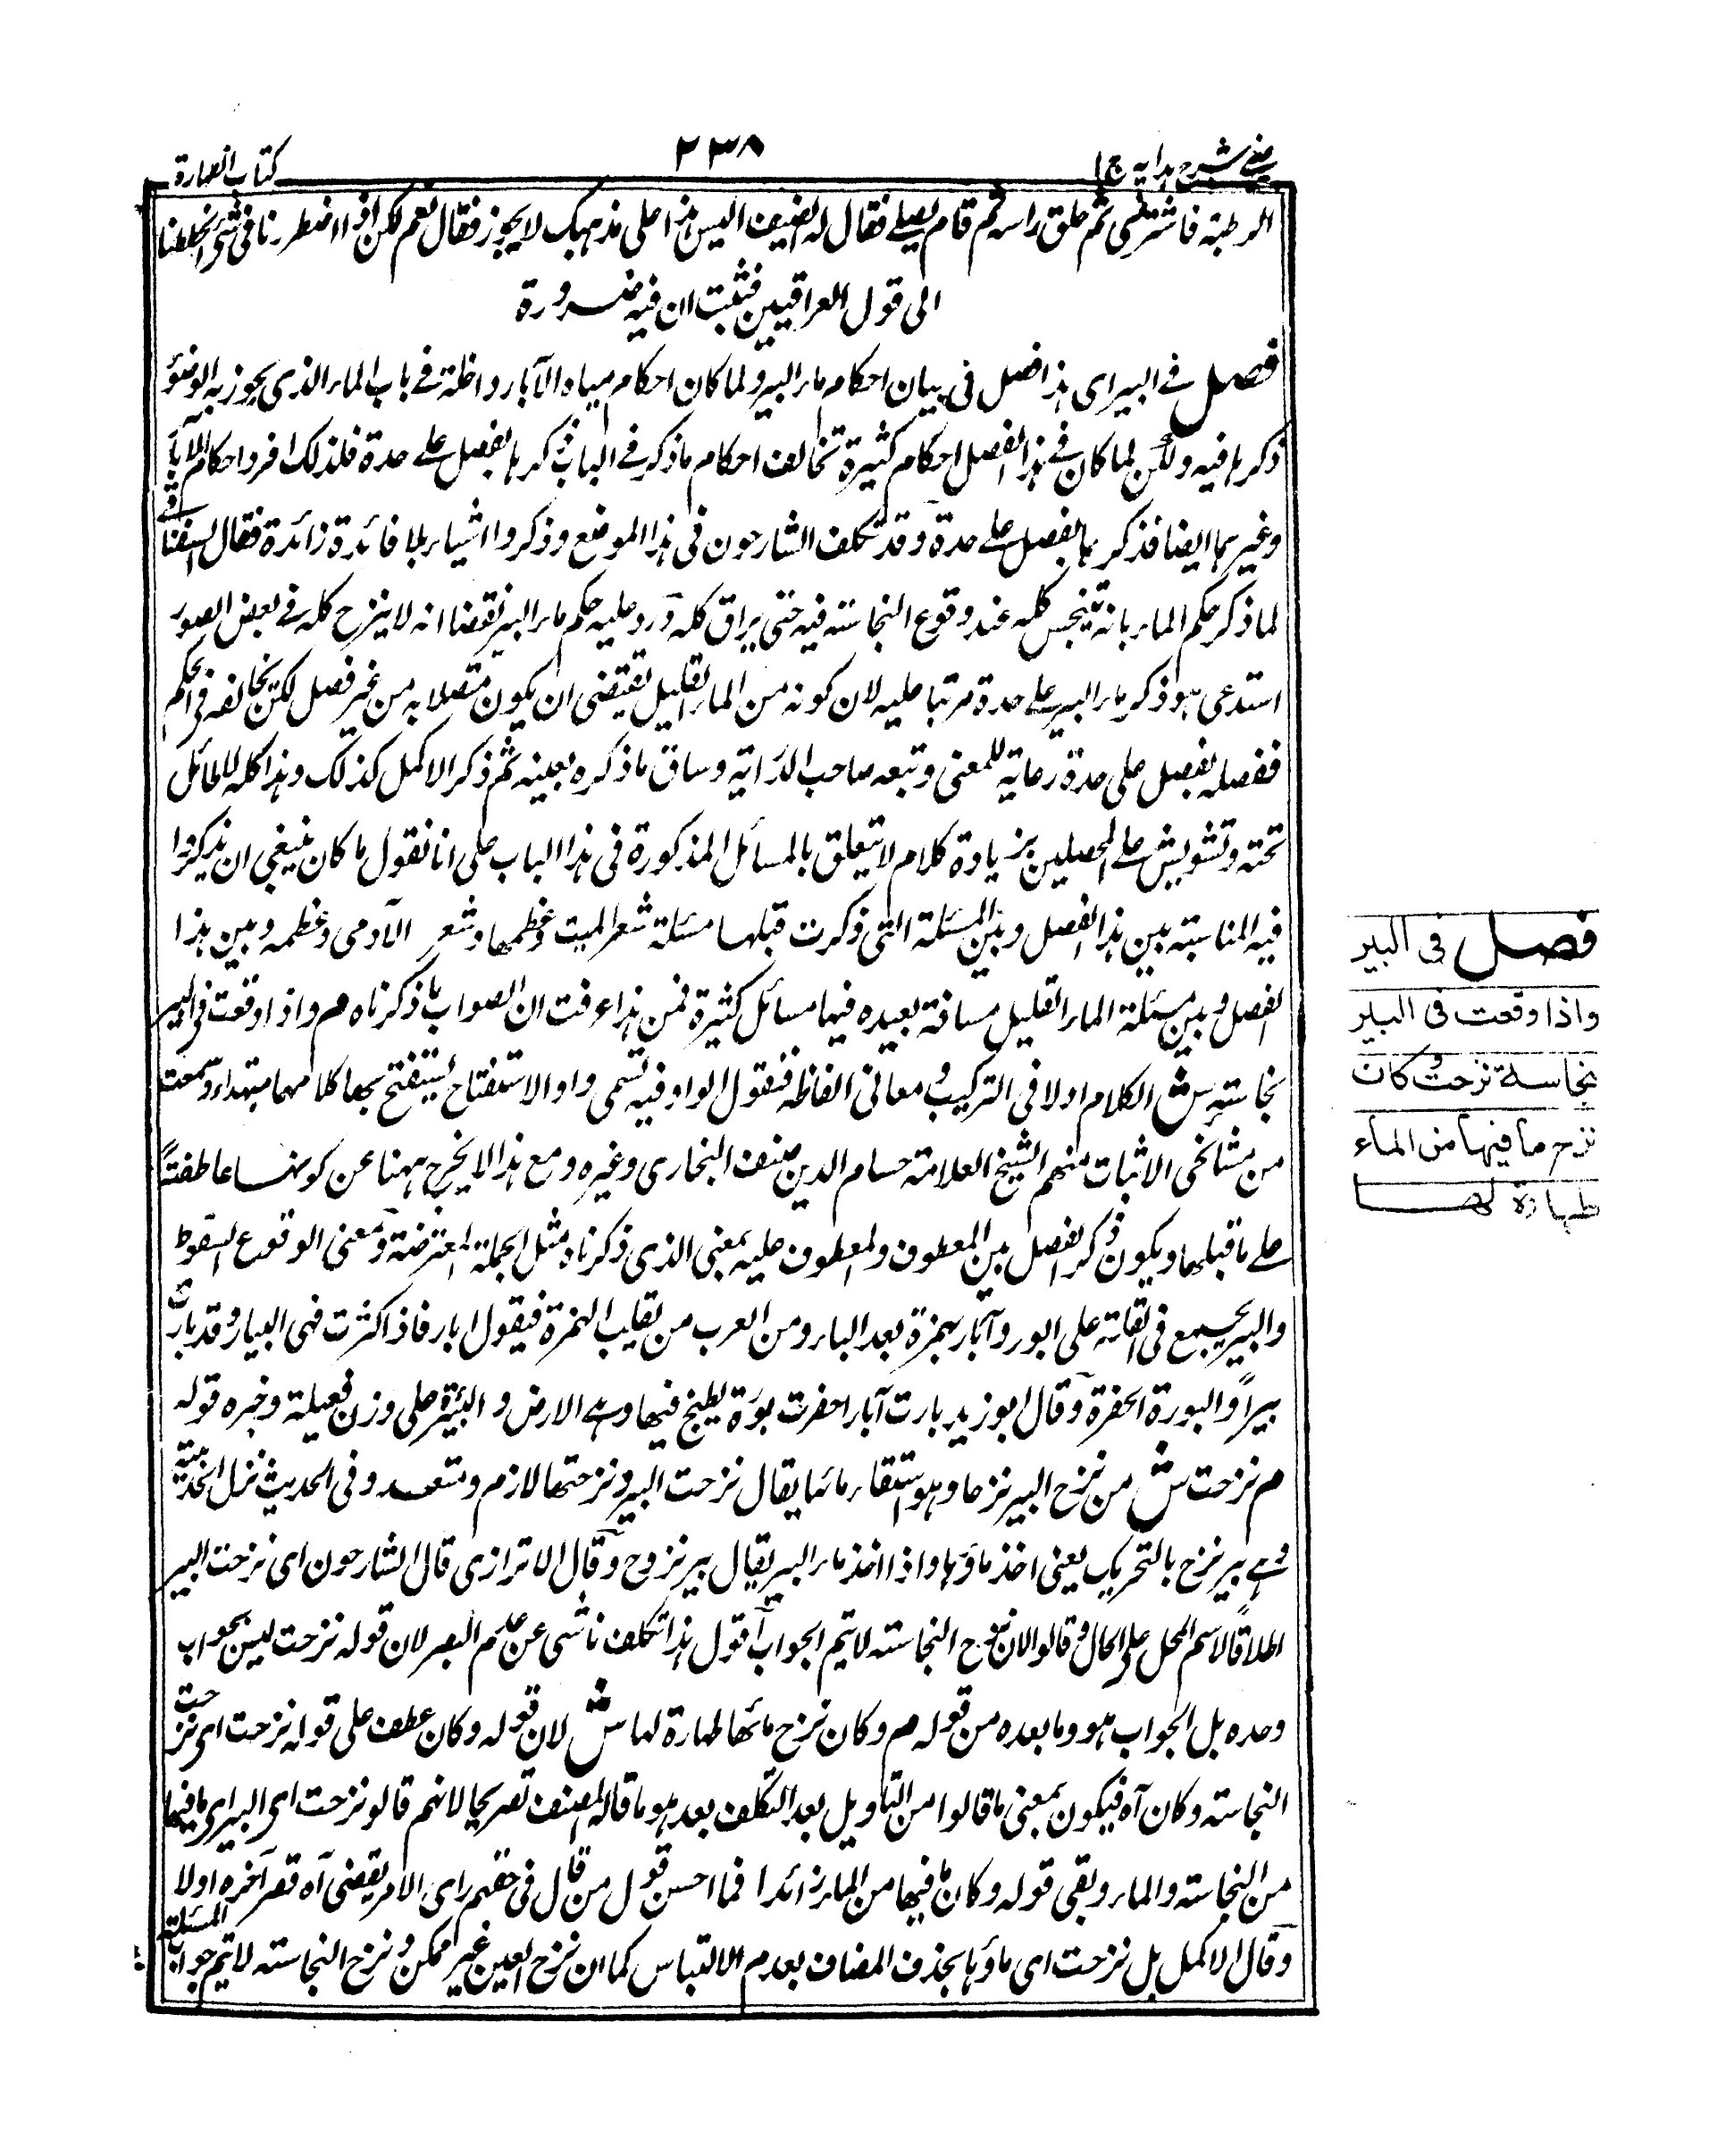 عيني شرح هدايه ج ١
٢٣٨
كتاب الطهارة
الرطبة فاشترى ثم حلق راسه ثم قام يصلے فقال له الضيف اليس هذا على مذهبك لا يجوز فقال نعم لكن اذا اضطررنا فى شئ انحططنا
الى قول العراقيين فثبت ان فيه ضرورة
فصل فے البير اى هذا فصل فى بيان احكام ماء البير ولما كان احكام مياه الآبار داخلة فے باب الماء الذى يجوز به الوضوء
ذكرها فيه ولكن لما كان فے هذا الفصل احكام كثيرة تخالف احكام ما ذكر فے الباب ذكرها بفصل على حدة فلذلك افرد احكام الآبار
وغيرهما ايضا فذكرها بفصل علے حدة وقد تكلف الشارحون فى هذا الموضع وذكروا اشياء بلا فائدة زائدة فقال السغناقے
لما ذكر حكم الماء بانه يتنجس كله عند وقوع النجاسته فيه حتى يراق كله ورد عليه حكم ماء البير نقضا انه لا ينزح كله فے بعض الصور
استدعى هو ذكر ماء البير علے حدة مرتبا عليه لان كونه من الماء القليل يقتضى ان يكون متصلا به من غير فصل لكن يخالفه فى الحكم
ففصله بفصل على حدة رعاية للمعنى وتبعه صاحب الدراية وساق ما ذكره بعينه ثم ذكر الاكمل كذلك وهذا كله لا طائل
تحته وتشويش علے المحصلين بزيادة كلام لا يتعلق بالمسائل المذكورة فى هذا الباب على انا نقول ما كان ينبغى ان يذكروا
فيه المناسبة بين هذا الفصل وبين المسئلة التى ذكرت قبلها مسئلة شعر الميت وعظمها وشعر الآدمى وعظمه وبين هذا
الفصل وبين مسئلة الماء القليل مسافة بعيده فيها مسائل كثيرة فمن هذا عرفت ان الصواب ما ذكرناه م واذا وقعت فى البير
نجاسته ش الكلام اولا فى التركيب و معانى الفاظه فنقول الواو فيه تسمى واو الاستفتاح يستفتح بها كلامها مبتداء وسمعت
من مشائخى الاثبات منهم الشيخ العلامة حسام الدين مصنف البخارى وغيره ومع هذا لا يخرج ههنا عن كونها عاطفة
علے ما قبلها ويكون ذكر الفصل بين المعطوف والمعطوف عليه بمعنى الذى ذكرناه مثل الجملة المعترضة ومعنى الوقوع السقوط
والبير يجمع فى القلة على ابور وآبار بهمزة بعد الباء ومن العرب من يقلب الهمزة فيقول ابار فاذا كثرت فهى البيار وقد بارت
بيرا والبورة الحفرة وقال ابو زيد بارت آبارا حفرت بورة يطبخ فيها وهے الارض و البئيرة على وزن فعيلة وخبره قوله
م نزحت ش من نزح البير نزحا وهو استقاء مائها يقال نزحت البير ونزحتها لازم ومتعد وفى الحديث نزل الحديبية
وهے بير نزح بالتحريك يعنى اخذ ماؤها واذا اخذ ماء البير يقال بير نزوح وقال الاترازى قال الشارحون اى نزحت البير
اطلاقا لاسم المحل على الحال وقالوا لان نزح النجاسته لا يتم الجواب اقول هذا تكلف ناشى عن عدم البصر لان قوله نزحت ليس بجواب
وحده بل الجواب هو وما بعده من قوله م وكان نزح مائها طهارة لها ش لان قوله وكان عطف على قوله نزحت اى نزحت
النجاسته وكان آه فيكون بمعنى ما قالوا من التاويل بعد التكلف بعد هو ما قاله المصنف تصريحا لانهم قالو نزحت اى البير اى ما فيها
من النجاسته والماء وبقى قوله وكان ما فيها من الماء زائدا فما احسن قول من قال فى حقهم راى الامر يقضى آه قصر آخره اولا
وقال الاكمل بل نزحت اى ماؤها بحذف المضاف بعدم الالتباس كما ان نزح العين غير ممكن ونزح النجاسته لا يتم جواب المسئلة
فصل فى البير
واذا وقعت فى البير
نجاسة نزحت وكان
نزح ما فيها من الماء
طهارة لها